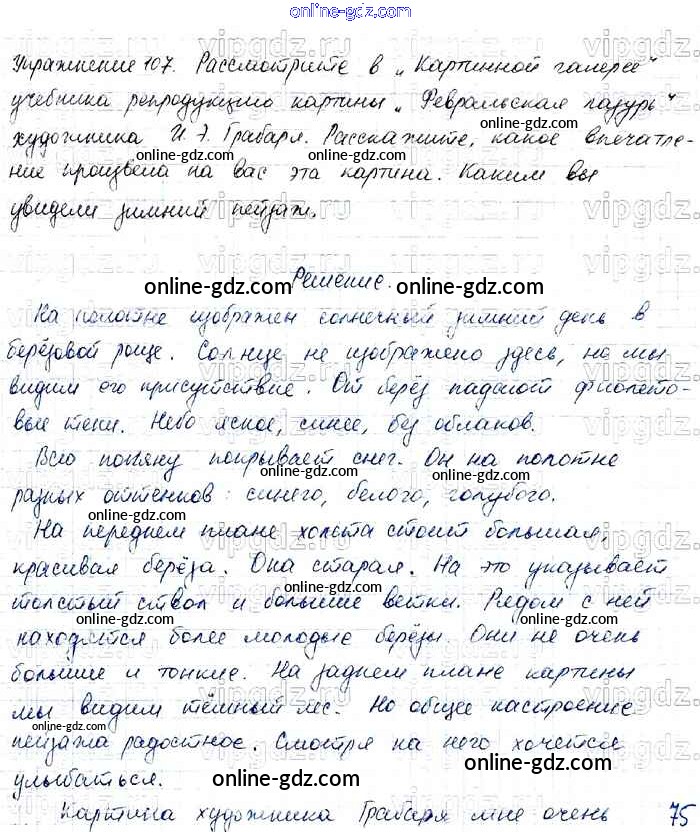 online-gdz.com
Упражнение 107. Рассмотрите в „Картинной галерее"
учебника репродукцию картины „Февральская лазурь"
художника И. Э. Грабаря. Расскажите, какое впечатле-
ние произвела на вас эта картина. Каким вы
увидели зимний пейзаж.
Решение.
На полотне изображен солнечный зимний день в
берёзовой роще. Солнце не изображено здесь, но мы
видим его присутствие. От берёз падают фиолето-
вые тени. Небо ясное, синее, без облаков.
Всю поляну покрывает снег. Он на полотне
разных оттенков: синего, белого, голубого.
На переднем плане холста стоит большая,
красивая берёза. Она старая. На это указывает
толстый ствол и большие ветки. Рядом с ней
находятся более молодые берёзы. Они не очень
большие и тонкие. На заднем плане картины
мы видим тёмный лес. Но общее настроение
пейзажа радостное. Смотря на него хочется
улыбаться.
Картина художника Грабаря мне очень
75